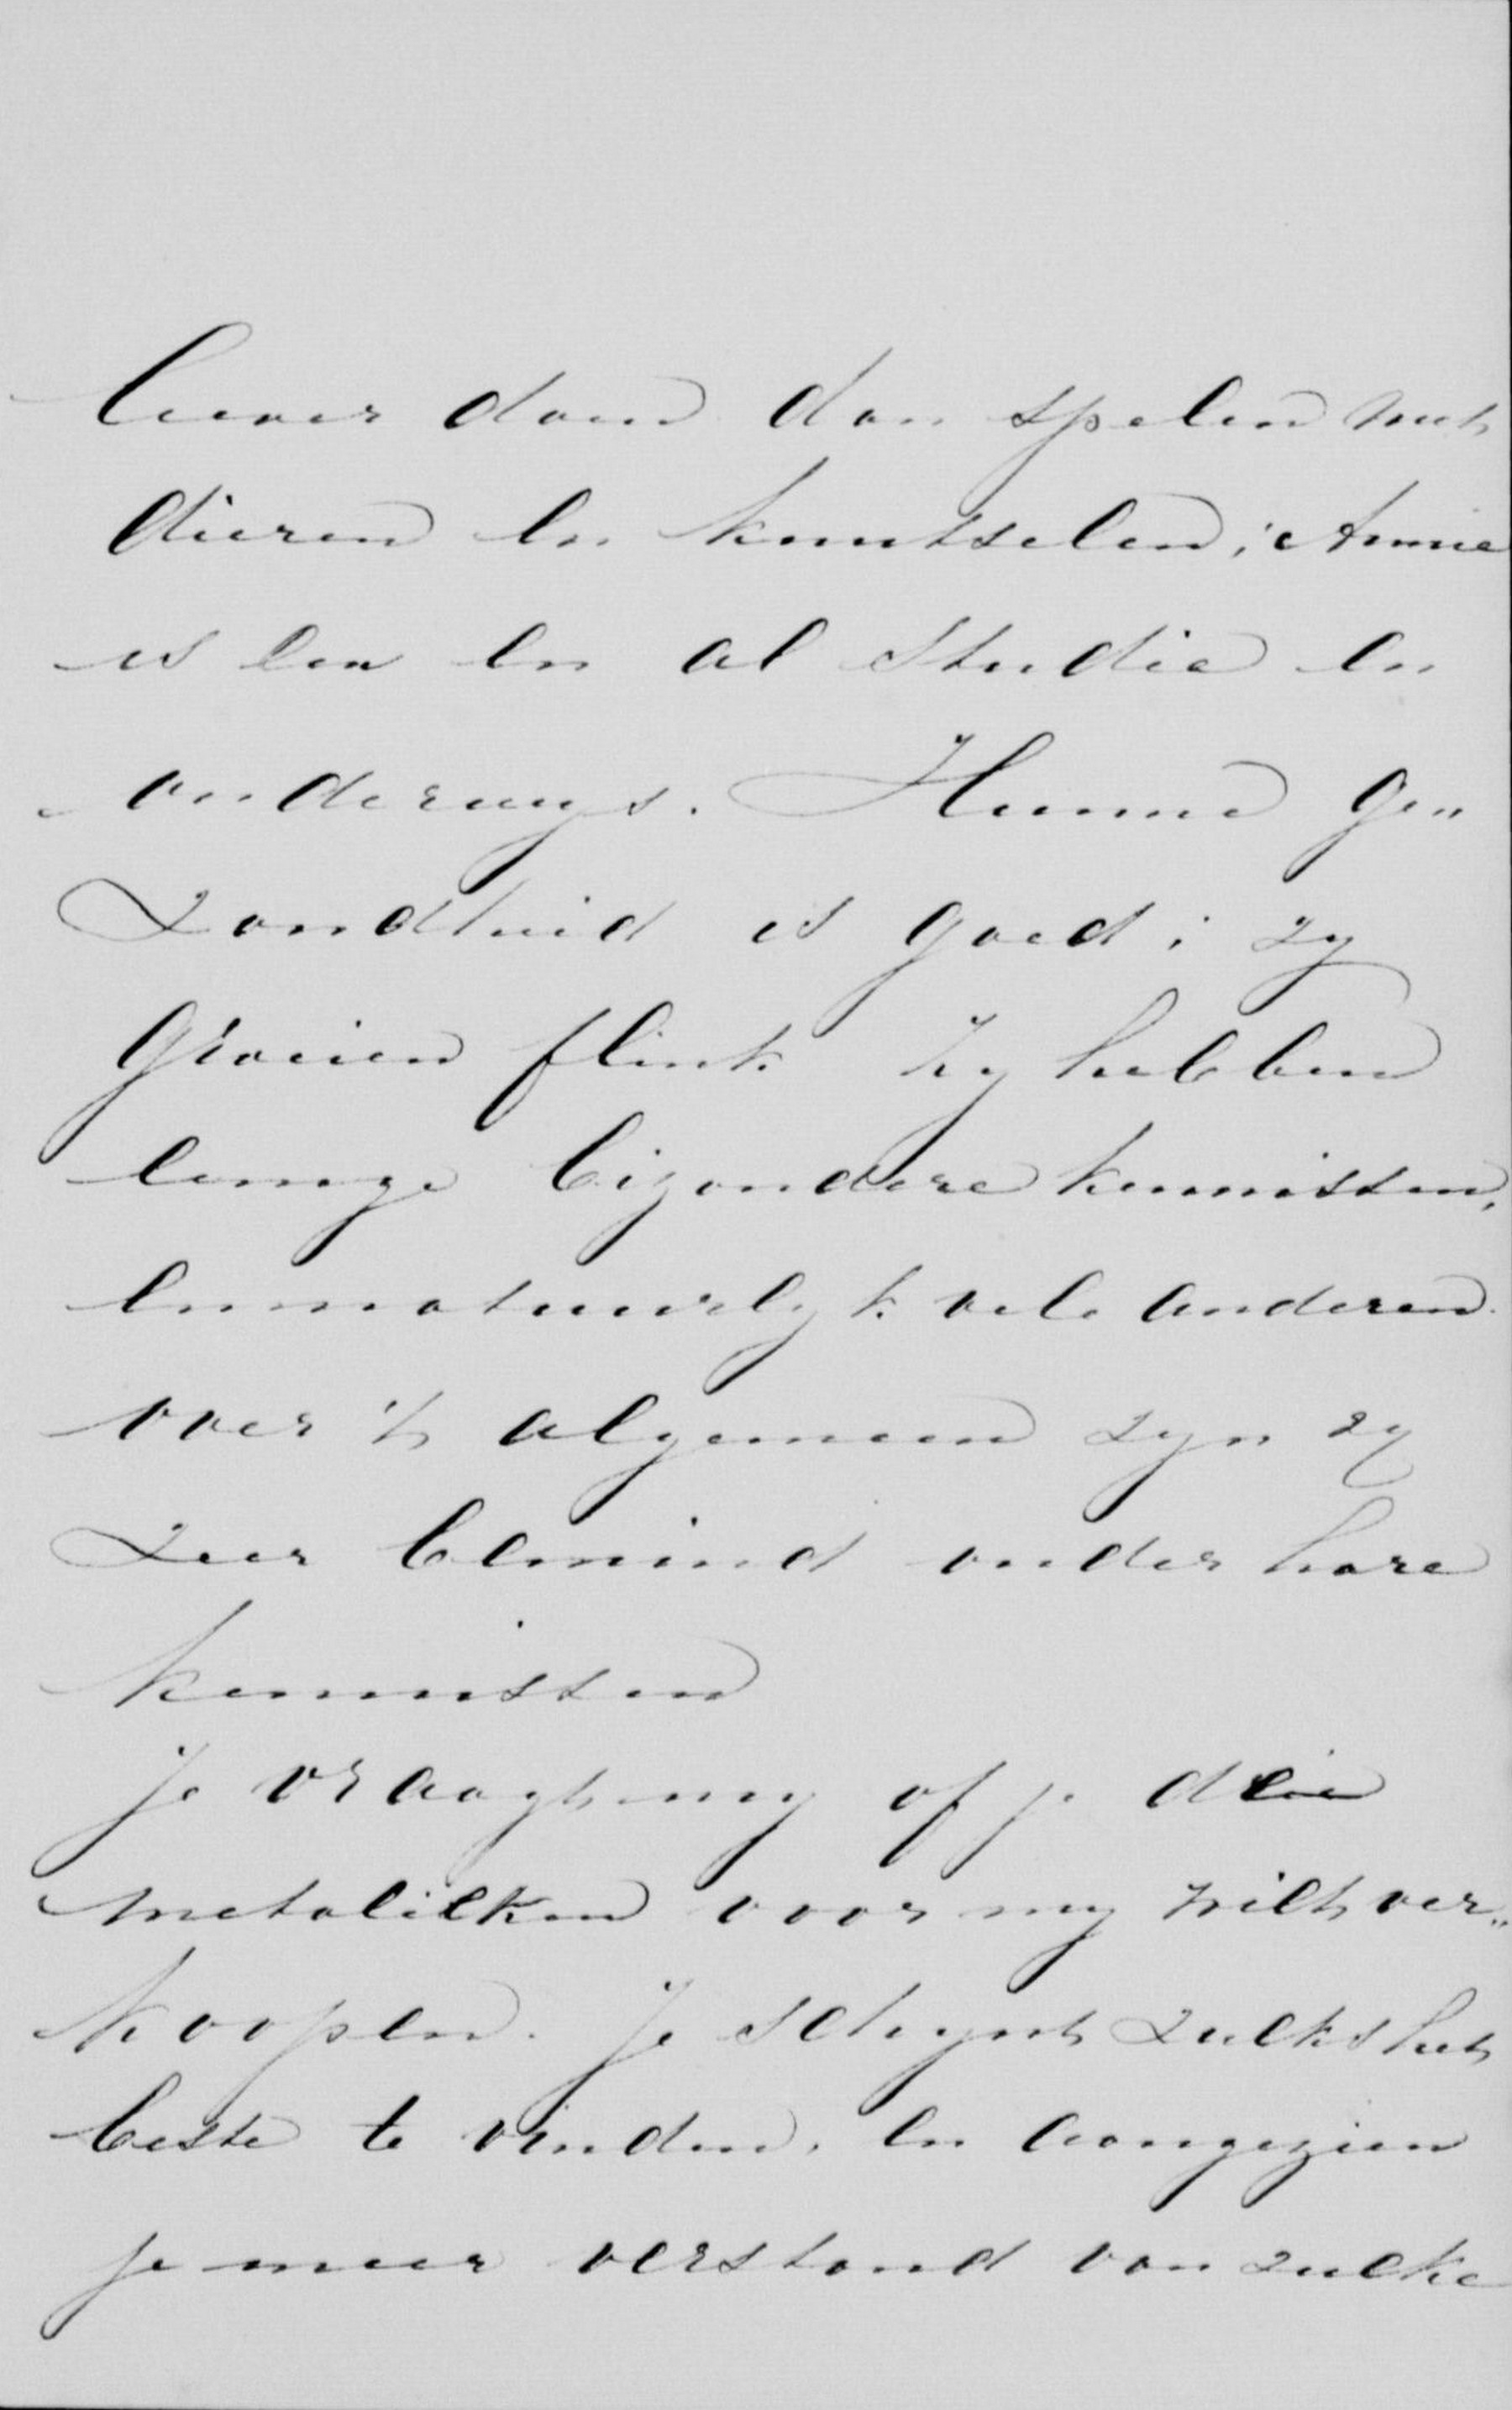 liever doen dan spelen met
dieren en knutselen; Annie
is een en al studie en
onderwys. Hunne ge„
zondheid is goed; zy
groeien flink zy hebben
eenige bizondere kennissen,
en natuurlyk vele anderen.
over 't algemeen zyn zy
zeer bemind onder hare
kennissen
je vraagt my of je die
metalieken voor my wilt ver„
koopen. Je schynt zulks het
beste te vinden, en aangezien
je meer verstand van zulke